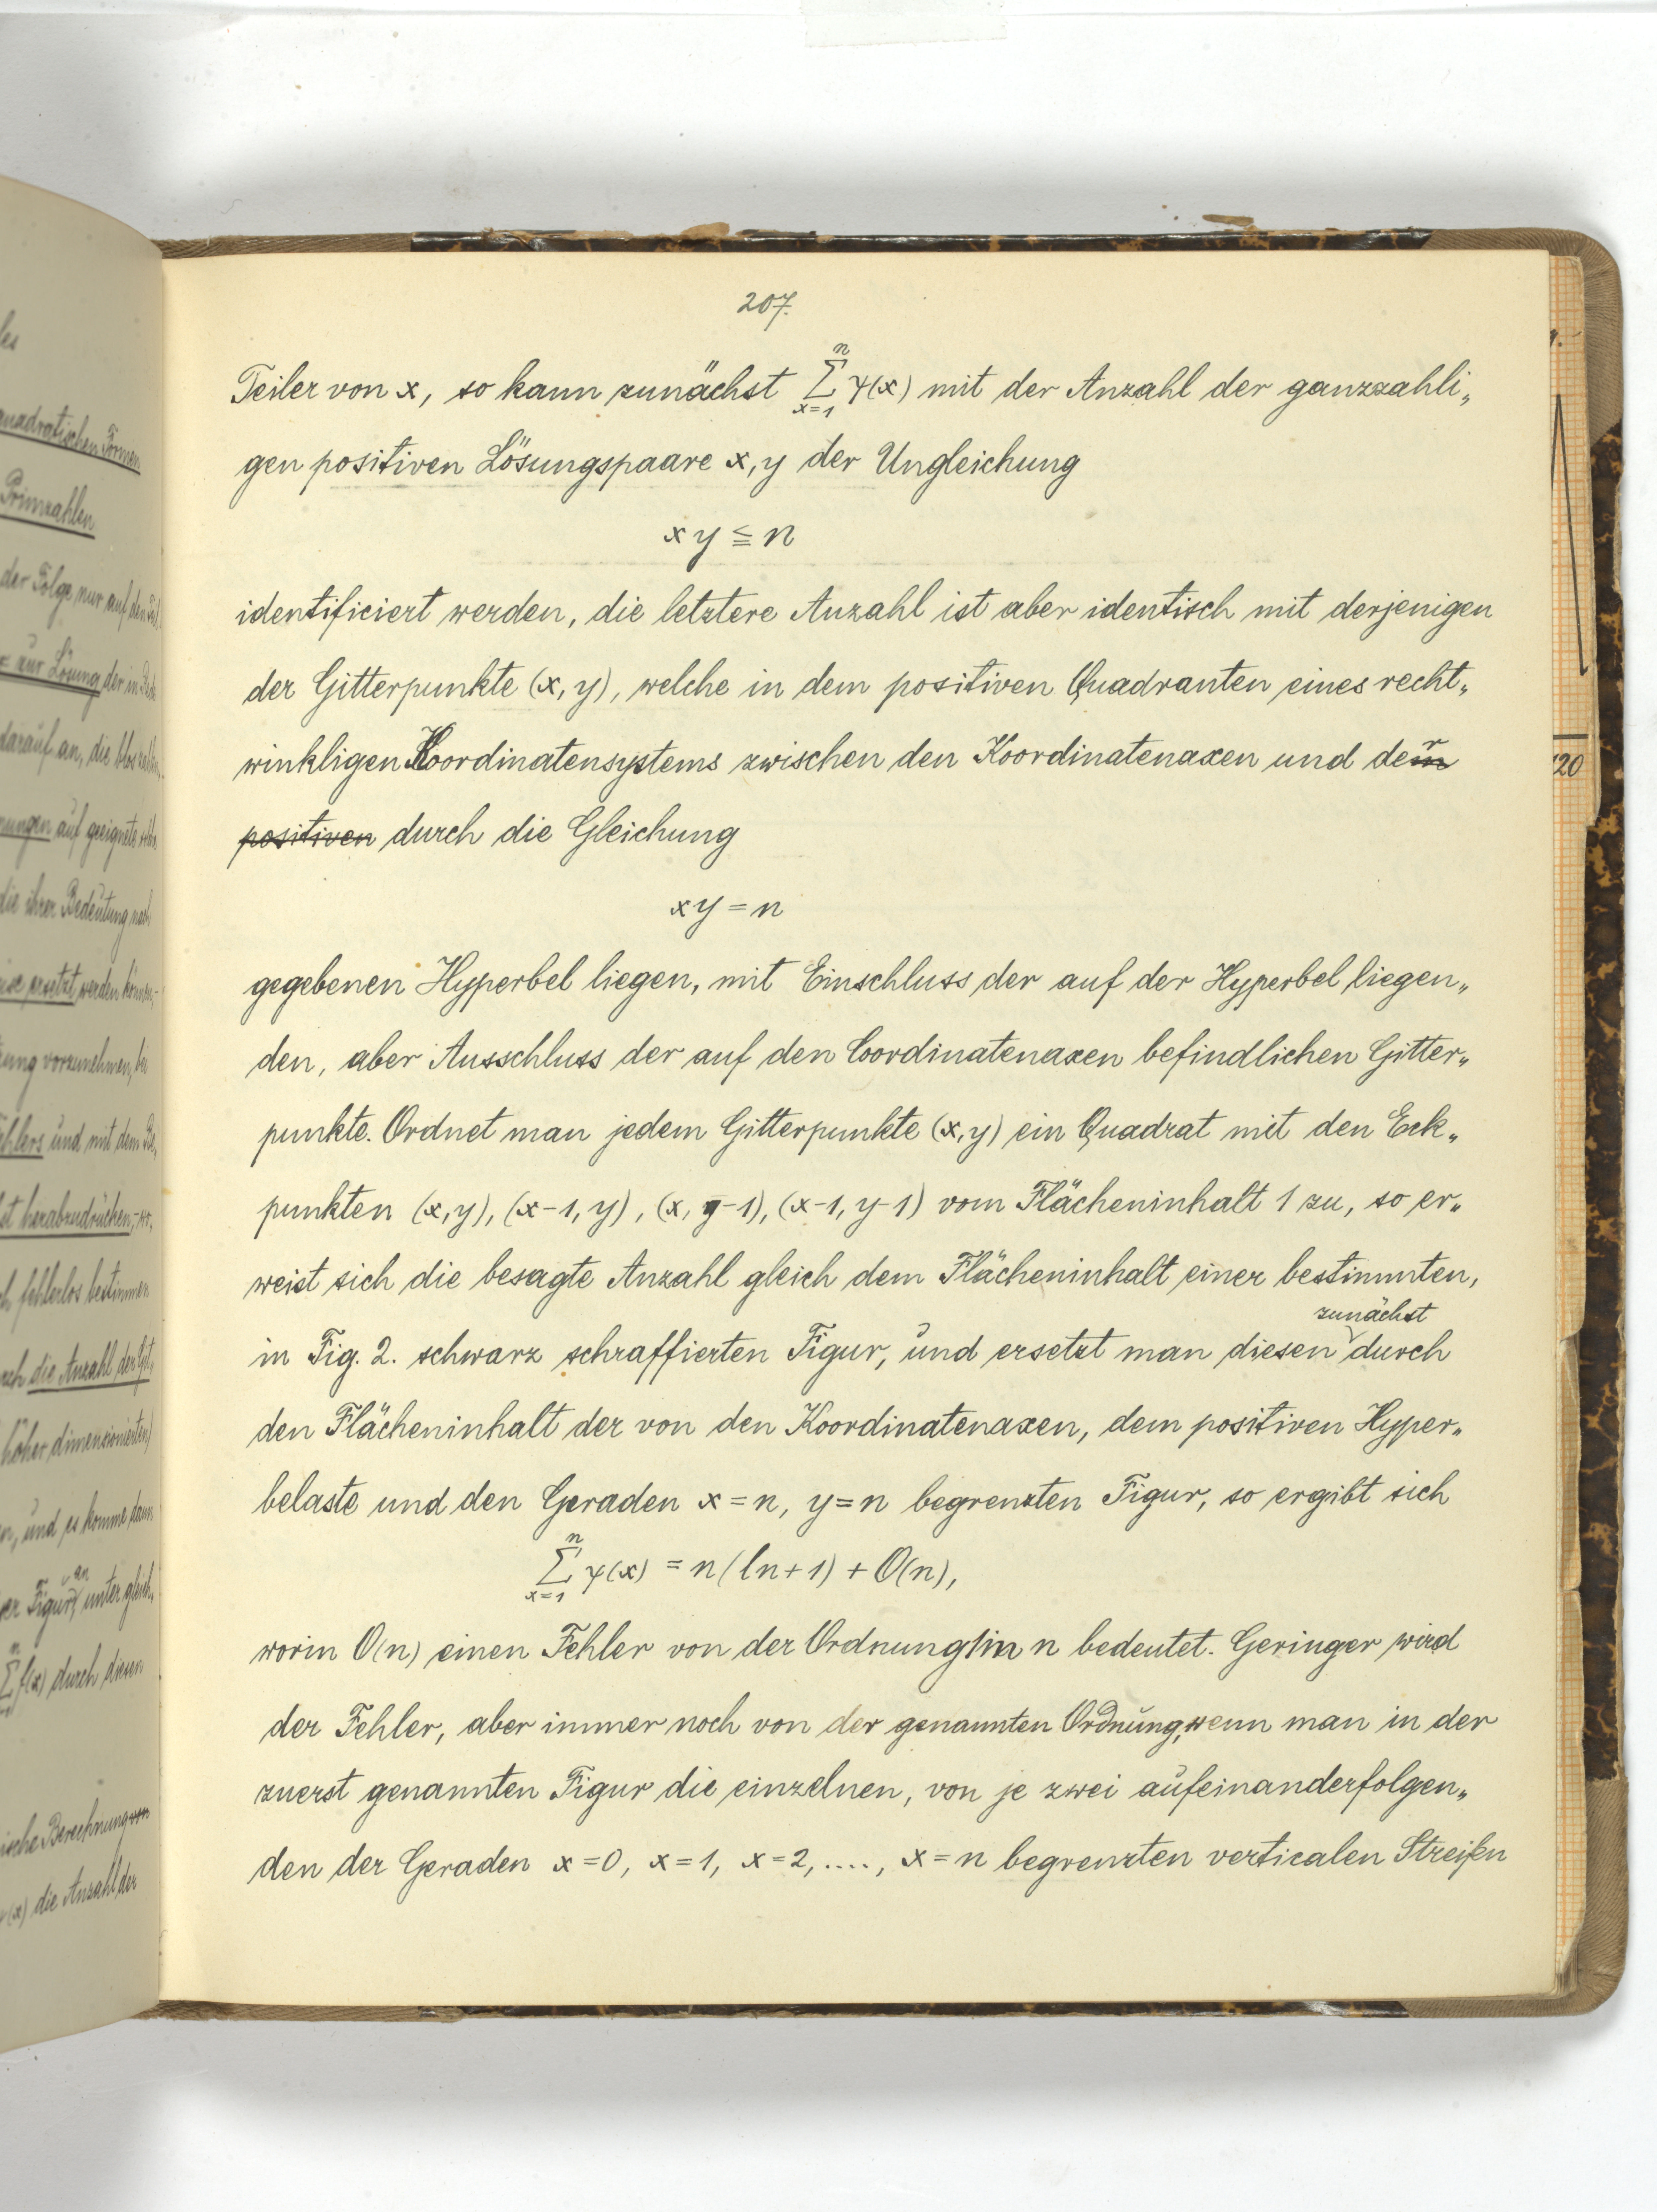 207.
Teiler von x, so kann zunächst \sum_{x=1}^{n} ψ(x) mit der Anzahl der ganzzahli„
gen positiven Lösungspaare x, y der Ungleichung
x y ≦ n
identificiert werden, die letztere Anzahl ist aber identisch mit derjenigen
der Gitterpunkte (x, y), welche in dem positiven Quadranten eines recht„
winkligen Koordinatensystems zwischen den Koordinatenaxen und der
positiven durch die Gleichung
xy = n
gegebenen Hyperbel liegen, mit Einschluss der auf der Hyperbel liegen„
den, aber Ausschluss der auf den Coordinatenaxen befindlichen Gitter„
punkte. Ordnet man jedem Gitterpunkte (x, y) ein Quadrat mit den Eck„
punkten (x, y), (x-1, y), (x, y-1), (x-1, y-1) vom Flächeninhalt 1 zu, so er„
weist sich die besagte Anzahl gleich dem Flächeninhalt einer bestimmten,
in Fig. 2. schwarz schraffierten Figur, und ersetzt man diesen zunächst durch
den Flächeninhalt der von den Koordinatenaxen, dem positiven Hyper„
belaste und den Geraden x = n, y = n begrenzten Figur, so ergibt sich
\sum_{x=1}^{n} ψ(x) = n(ln+1) + O(n),
worin O(n) einen Fehler von der Ordnung in n bedeutet. Geringer wird
der Fehler, aber immer noch von der genannten Ordnung, wenn man in der
zuerst genannten Figur die einzelnen, von je zwei aufeinanderfolgen„
den der Geraden x = 0, x = 1, x = 2, ...., x = n begrenzten verticalen Streifen
quadratischen Formen
Primzahlen
der Folge nur auf den
zur Lösung der in
darauf an, die
auf geeignete
die ihrer Bedeutung nach
ersetzt werden können,
vorzunehmen, bei
und mit dem
herabzudrücken,
fehlerlos bestimmen
die Anzahl der Git„
höher dimensionierten)
und es komme dann
Figur, an unter gleich„
f(x) durch diesen
Berechnung von
die Anzahl der
120